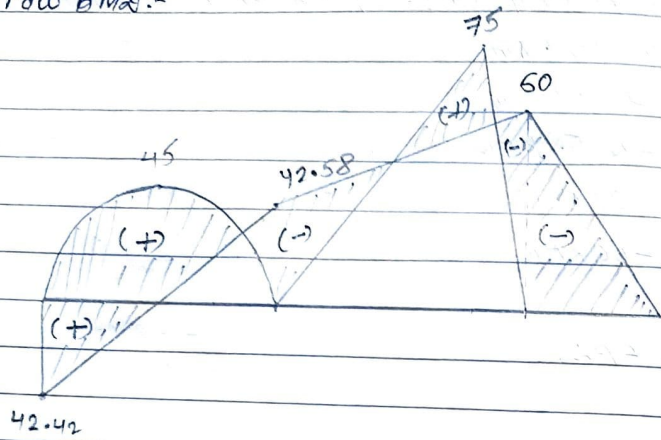 BMD:-
75
60
(+)
(-)
45
42.58
(+)
(-)
(-)
(+)
42.42